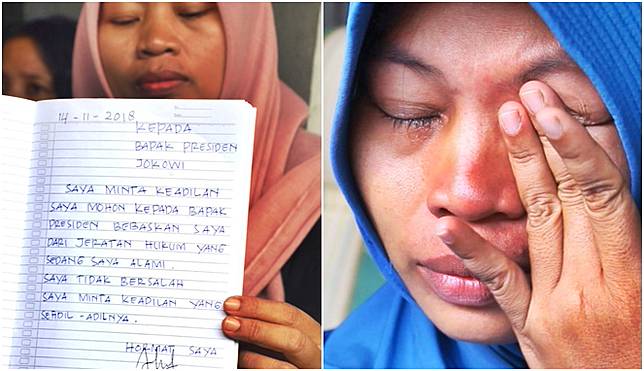 14-11-2018
KEPADA
BAPAK PRESIDEN
JOKOWI
SAYA MINTA KEADILAN
SAYA MOHON KEPADA BAPAK
PRESIDEN BEBASKAN SAYA
DARI JERATAN HUKUM YANG
SEDANG SAYA ALAMI.
SAYA TIDAK BERSALAH
SAYA MINTA KEADILAN YANG
SEADIL-ADILNYA.
HORMAT SAYA